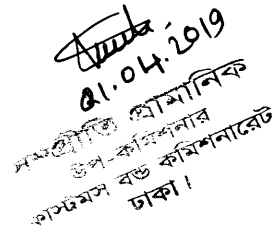 21.04.2019
সম্প্রীতি প্রামানিক
উপ-কমিশনার
কাস্টমস বন্ড কমিশনারেট
ঢাকা।